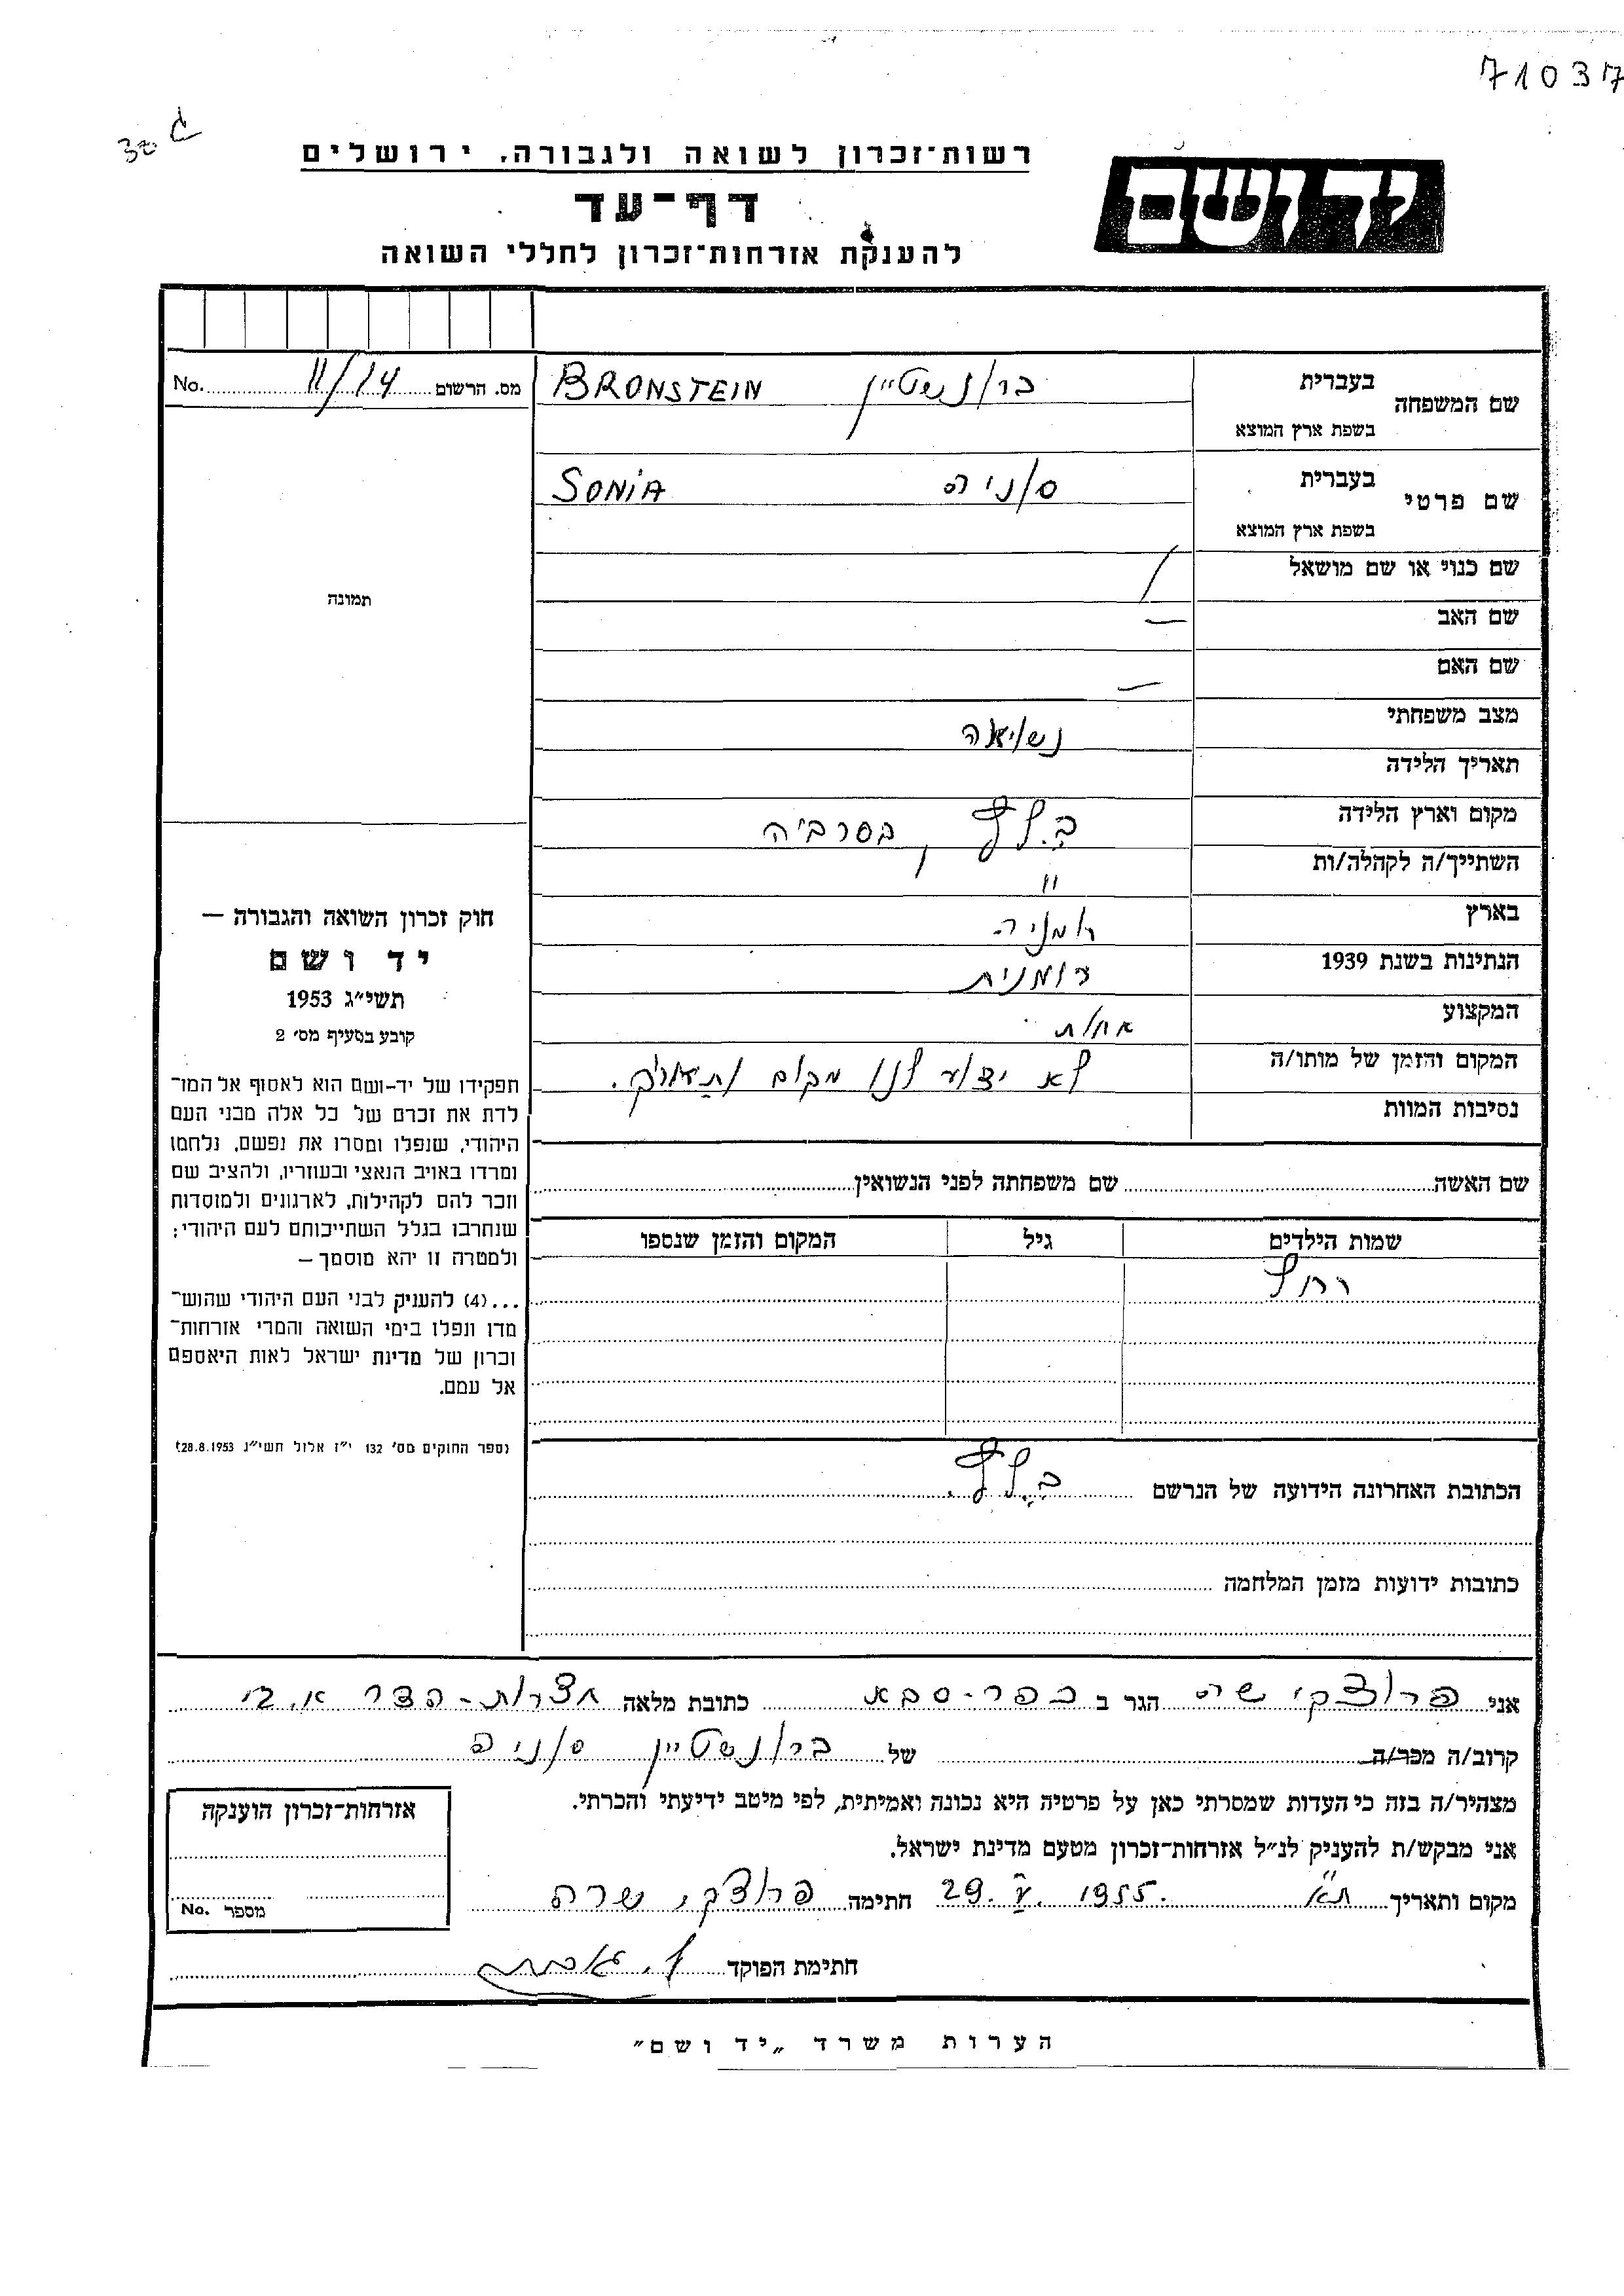 71037
רשות־זכרון לשואה ולגבורה, ירושלים
יד ושם
דף־עד
להענקת אזרחות־זכרון לחללי השואה
שם המשפחה בעברית ברונשטיין BRONSTEIN
בשפת ארץ המוצא
מס. הרשום 11/14 No.
שם פרטי בעברית סוניה SONIA
בשפת ארץ המוצא
שם כנוי או שם מושאל /
תמונה
שם האב —
שם האם —
מצב משפחתי נשואה
תאריך הלידה
מקום וארץ הלידה בסרביה
השתייך/ה לקהלה/ות "
בארץ רומניה
הנתינות בשנת 1939 רומנית
המקצוע אחות
המקום והזמן של מותו/ה לא ידוע לנו מקום ותאריך.
נסיבות המוות
חוק זכרון השואה והגבורה —
יד ושם
תשי״ג 1953
קובע בסעיף מס׳ 2
תפקידו של יד-ושם הוא לאסוף אל המו־
לדת את זכרם של כל אלה מבני העם
היהודי, שנפלו ומסרו את נפשם, נלחמו
ומרדו באויב הנאצי ובעוזריו, ולהציב שם
וזכר להם לקהילות, לארגונים ולמוסדות
שנחרבו בגלל השתייכותם לעם היהודי;
ולמטרה זו יהא מוסמך —
...(4) להעניק לבני העם היהודי שהוש־
מדו ונפלו בימי השואה והמרי אזרחות־
זכרון של מדינת ישראל לאות היאספם
אל עמם.
(ספר החוקים מס׳ 132 י״ז אלול תשי״ג 28.8.1953)
שם האשה שם משפחתה לפני הנשואין
שמות הילדים גיל המקום והזמן שנספו
רחל
הכתובת האחרונה הידועה של הנרשם
כתובות ידועות מזמן המלחמה
אני שרה הגר ב כפר-סבא כתובת מלאה חצרות-הדר
קרוב/ה מכר/ה של ברונשטיין סוניה
מצהיר/ה בזה כי העדות שמסרתי כאן על פרטיה היא נכונה ואמיתית, לפי מיטב ידיעתי והכרתי.
אני מבקש/ת להעניק לנ״ל אזרחות־זכרון מטעם מדינת ישראל.
מקום ותאריך ת"א 29. V. 1955. חתימה שרה
חתימת הפוקד
אזרחות־זכרון הוענקה
מספר No.
הערות משרד „יד ושם״